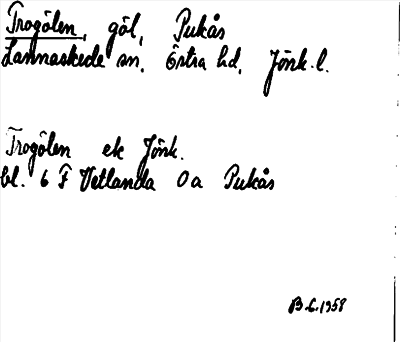 Trogölen, göl, Pukås
Lannaskede sn. Östra hd. Jönk. l.
Trogölen ek Jönk.
bl. 6 F Vetlanda 0a Pukås
B.L. 1958